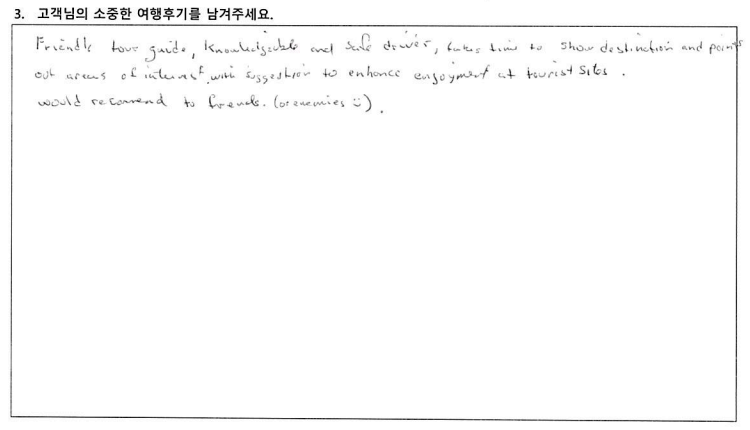 3. 고객님의 소중한 여행후기를 남겨주세요.
Friendly tour guide, Knowledgeable and Safe driver, takes time to show destination and points
out areas of interest with suggestion to enhance enjoyment at tourist sites.
would recomend to friends. (or enemies :)).